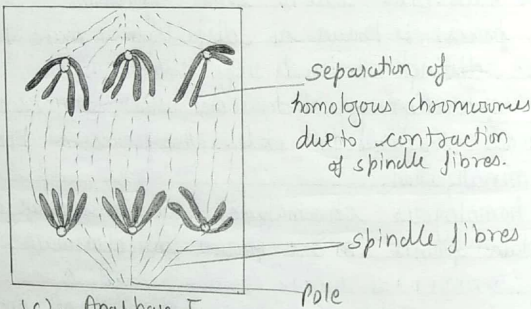 separation of
homologous chromosomes
due to contraction
of spindle fibres.
spindle fibres
Pole
(c) Anaphase I